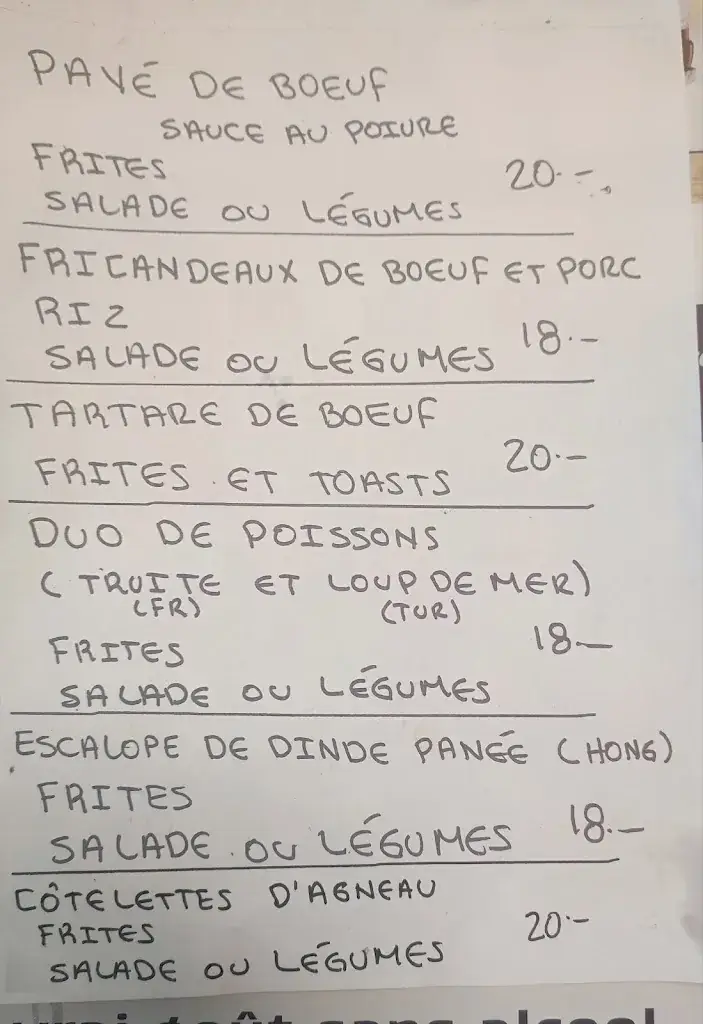 PAVÉ DE BOEUF
SAUCE AU POIVRE
FRITES
20.-
SALADE OU LÉGUMES
FRICANDEAUX DE BOEUF ET PORC
RIZ
18.-
SALADE OU LÉGUMES
TARTARE DE BOEUF
20.-
FRITES ET TOASTS
DUO DE POISSONS
(TRUITE ET LOUP DE MER)
(FR) (TUR)
18.-
FRITES
SALADE OU LÉGUMES
ESCALOPE DE DINDE PANÉE (HONG)
FRITES
18.-
SALADE OU LÉGUMES
CÔTELETTES D'AGNEAU
FRITES
20.-
SALADE OU LÉGUMES
goût sans alcool